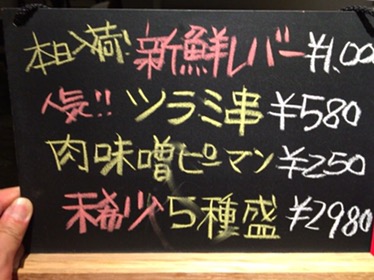 本日入荷!新鮮レバー ¥1,000
人気!!ツラミ串 ¥580
肉味噌ピーマン ¥250
稀少5種盛 ¥2980